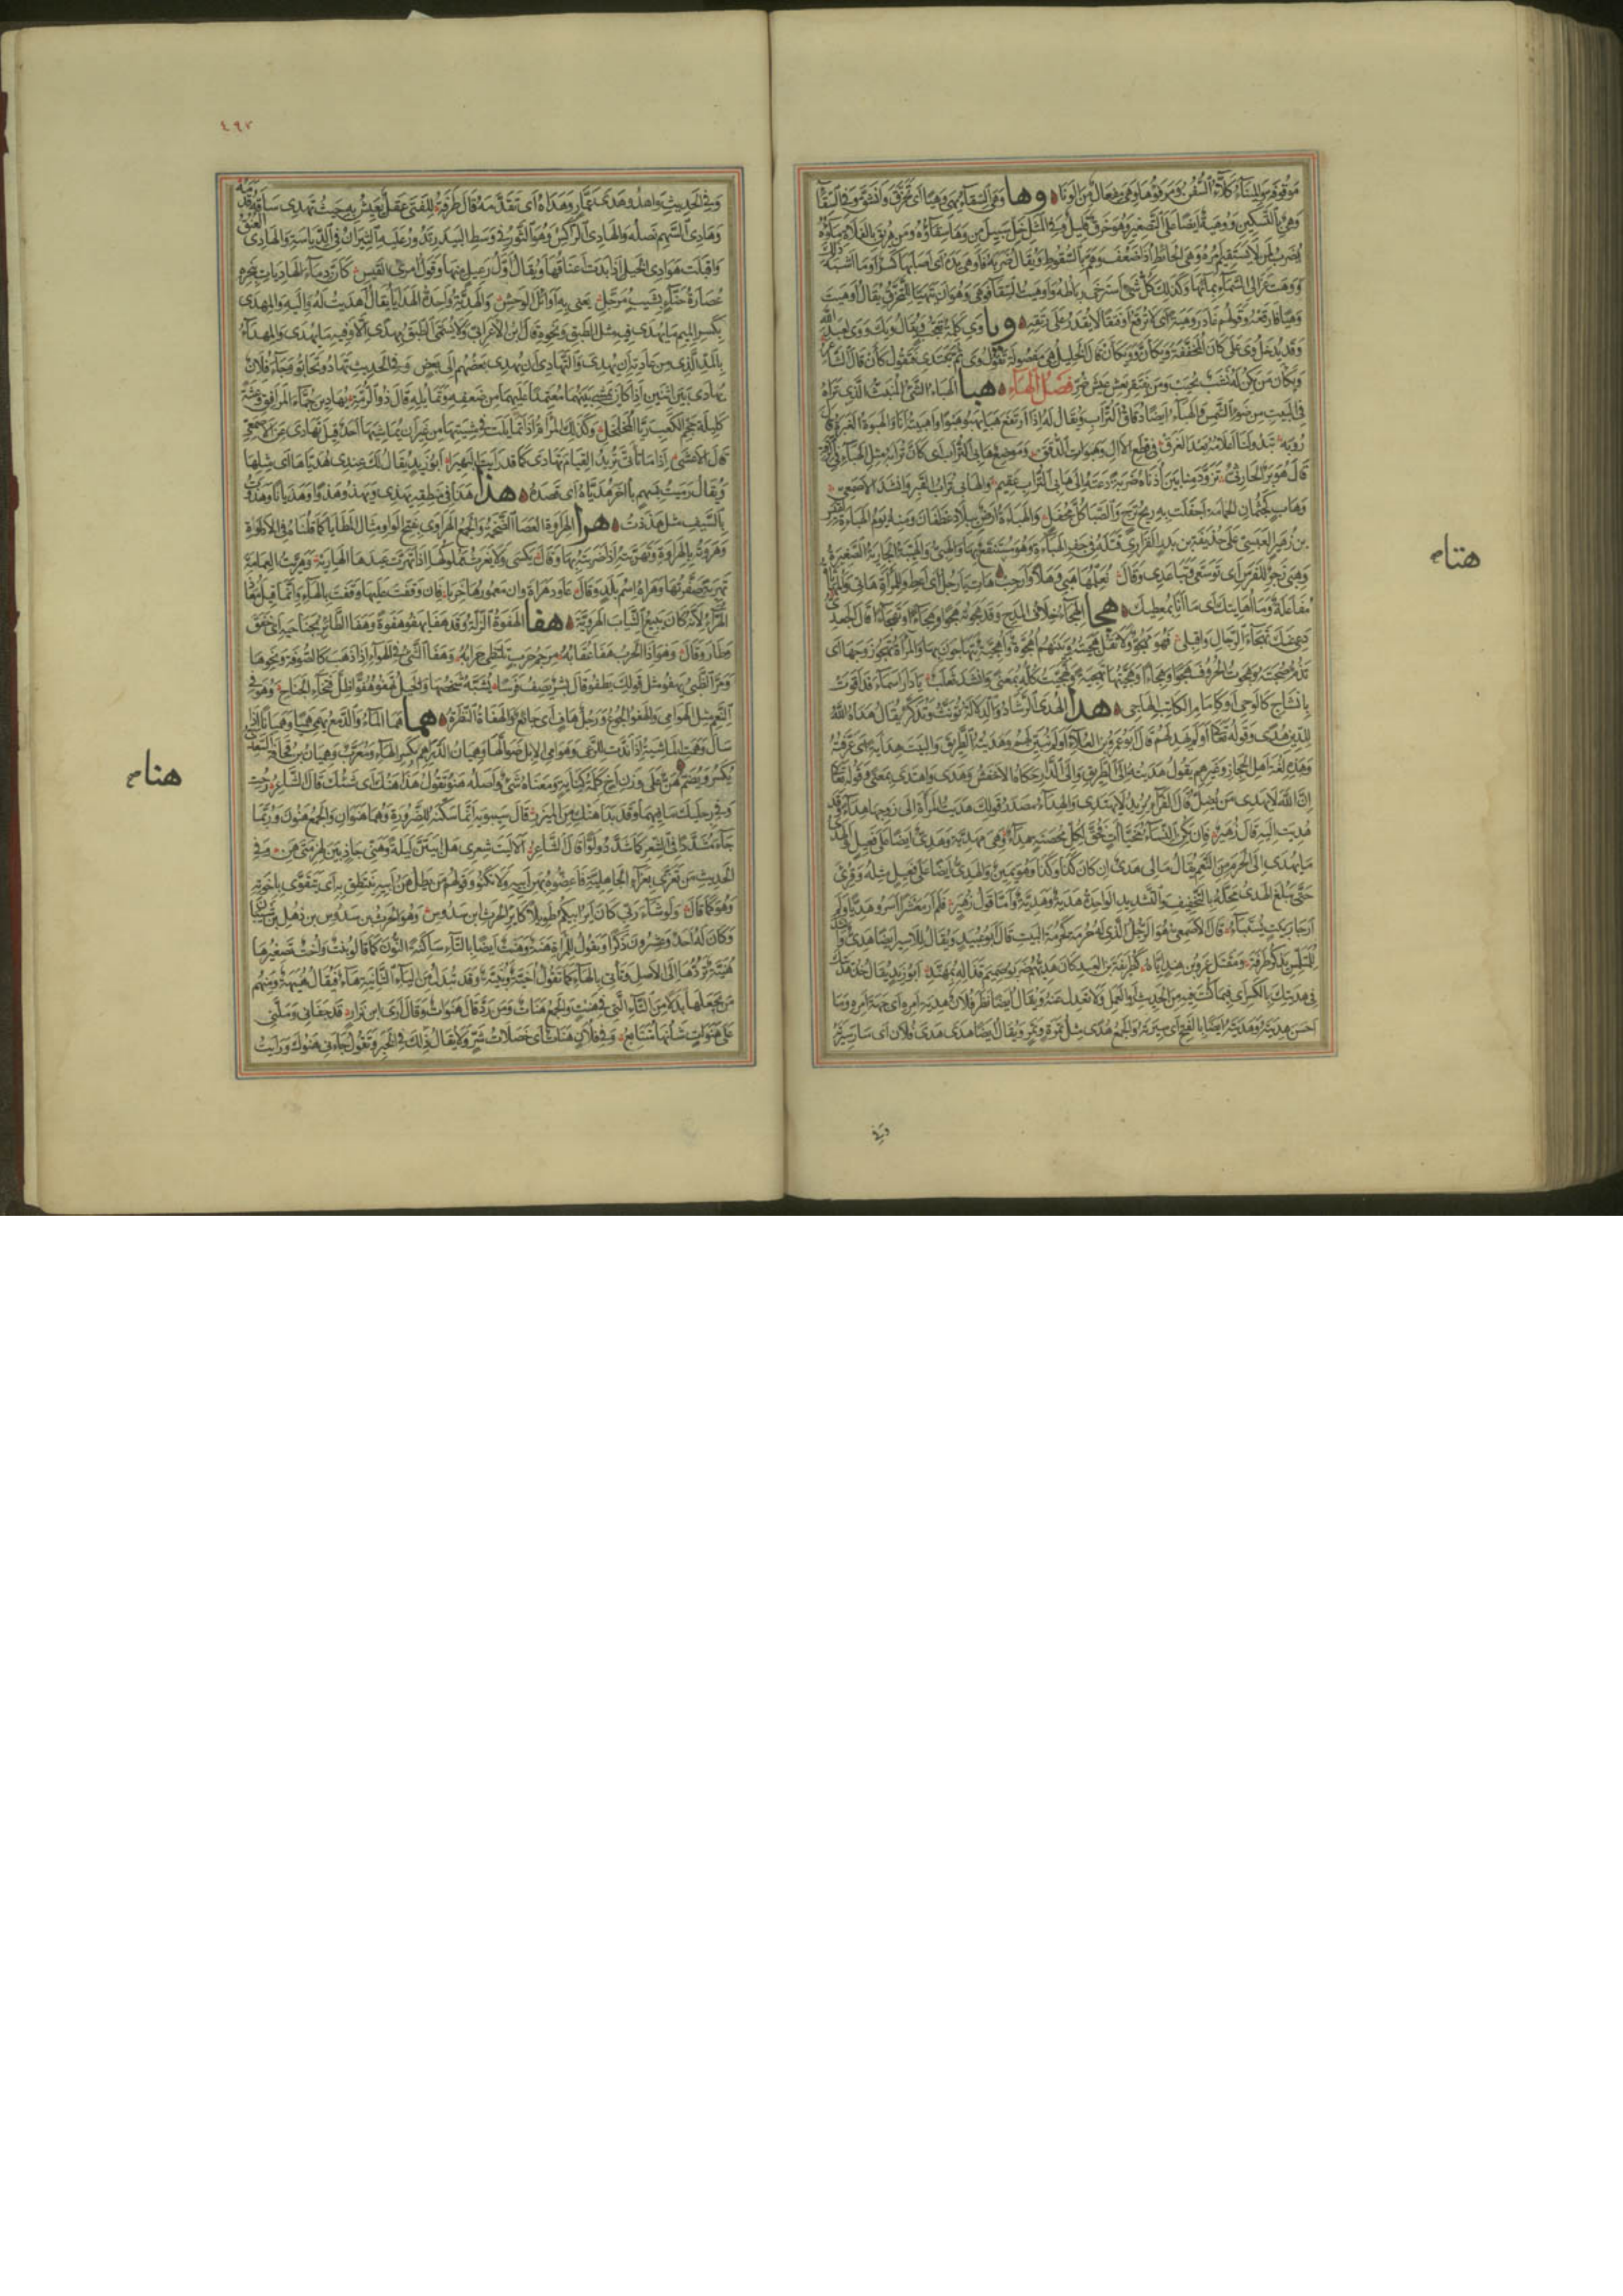 وها وهى السقاء يهى وهيا اى تخرق وانشق وفى السقاء
وهى بالتسكين ووهية ايضا على التصغير وهو خرق قليل وفى المثل خل سبيل من وها سقاؤه ومن هريق بالفلاة ماؤه
يضرب لمن لا يستقيم امره وهى الحائط اذا ضعف وهم بالسقوط ويقال ضربه فاوهى يده اى اصابها كسر او ما اشبه ذلك
وكذلك كل شئ استرخى رباطه واوهيت السقاء فوهى وهو ان يتهيا للتخرق يقال اوهيت
وهيا فارقعه وقولهم غادر وهية لا ترقع اى فتقا لا يقدر على رتقه ويا وى كلمة تعجب ويقال ويك ووى لعبد الله
وقد يدخل وى على كان المخففة والمشددة
ويكان من يكن له نشب يحبب ومن يفتقر يعش عيش ضر فصل الهاء هبا الهباء الشئ المنبث الذى تراه
فى البيت من ضوء الشمس والهباء ايضا دقاق التراب ويقال له اذا ارتفع هبا يهبو هبوا واهبيته انا والهبوة الغبرة قال
رؤبة تبدو لنا اعلامه بعد الغرق فى قطع الآل وهبوات الدقق وموضع هابى التراب اى كان ترابه مثل الهباء فى الرقة
قال هوبر الحارثى تزود منا بين اذناه ضربة دعته الى هابى التراب عقيم والهابى تراب القبر وانشد الاصمعى
وهاب كجثمان الحمامة اجفلت به ريح ترج والصبا كل مجفل والهباءة ارض ببلاد غطفان ومنه يوم الهباءة لقيس
بن زهير العبسى على حذيفة بن بدر الفزارى قتله فى جفر الهباءة وهو مستنقع بها والهبى والهبية الجارية الصغيرة
وهبى زجر للفرس اى توسعى وتباعدى وقال نعلمها هبى وهلا وارحب هات يا رجل اى اعط وللمرأة هاتى
مفاعلة وما اهاتيك اى ما انا بمعطيك هجا الهجاء خلاف المدح وقد هجوته هجوا وهجاء وتهجاء قال الجعدى
دعى عنك تهجاء الرجال واقبلى فهو مهجو ولا تقل هجيته وبينهم اهجوة واهجية يتهاجون بها والمرأة تهجو زوجها اى
تذم صحبته وهجوت الحروف هجوا وهجاء وهجيتها تهجية وتهجيت كله بمعنى وانشد ثعلب يا دار اسماء قد اقوت
بانشاج كالوحى او كامام الكاتب الهاجى هدا الهدى الرشاد والدلالة يؤنث ويذكر يقال هداه الله
للدين هدى وقوله تعالى اولم يهد لهم قال ابو عمرو بن العلاء اولم يبين لهم وهديته الطريق والبيت هداية اى عرفته
وهذه لغة اهل الحجاز وغيرهم يقول هديته الى الطريق والى الدار حكاها الاخفش وهدى واهتدى بمعنى وقوله تعالى
ان الله لا يهدى من يضل قال الفراء يريد لا يهتدى والهداء مصدر قولك هديت المرأة الى زوجها هداء وقد
هديت اليه قال زهير فان تكن النساء مخبآت فحق لكل محصنة هداء وهى مهدية وهدى ايضا على فعيل والهدى
ما يهدى الى الحرم من النعم يقال مالى هدى ان كان كذا وكذا وهو يمين والهدى ايضا على فعيل مثله وقرئ
حتى يبلغ الهدى محله بالتخفيف والتشديد الواحدة هدية وهدية واما قول زهير فلم ار معشرا اسروا هديا ولم
ار جار بيت يستباء قال الاصمعى هو الرجل الذى له حرمة كحرمة البيت قال ابو عبيد ويقال للاسير ايضا هدى وانشد
للمتلمس يذكر طرفة ومقتل عمرو بن هند اياه كطريفة بن العبد كان هديهم ضربوا صميم قذاله بمهند ابو زيد يقال خذ
فى هديتك بالكسر اى فيما كنت فيه من الحديث او العمل ولا تعدل عنه ويقال ايضا نظر فلان هدية امره اى جهة امره وما
احسن هديته وهديته ايضا بالفتح اى سيرته والجمع هدى مثل تمرة وتمر ويقال ايضا هدى هدى فلان اى سار سيرته
هتاه
وفى
٤٩٧
وفى الحديث واهدوا هدى عمار وهداه اى تقدمه قال طرفة للفتى عقل يعيش به حيث تهدى ساقه قدمه
وهادى السهم نصله والهادى الراكس وهو الثور فى وسط البيدر تدور عليه الثيران فى الدياسة والهادى العنق
واقبلت هوادى الخيل اذا بدت اعناقها ويقال اول رعيل منها وقول امرئ القيس كان دماء الهاديات بنحره
عصارة حناء بشيب مرجل يعنى به اوائل الوحش والهدية واحدة الهدايا يقال اهديت له واليه والمهدى
بكسر الميم ما يهدى فيه مثل الطبق ونحوه قال ابن الاعرابى ولا يسمى الطبق مهدى الا وفيه ما يهدى والمهداء
بالمد الذى من عادته ان يهدى والتهادى ان يهدى بعضهم الى بعض وفى الحديث تهادوا تحابوا وجاء فلان
يهادى بين اثنين اذا كان يمشى بينهما معتمدا عليهما من ضعفه وتمايله قال ذو الرمة يهادين جماء المرافق وعثة
كليلة حجم الكعب ريا المخلخل وكذلك المرأة اذا تمايلت فى مشيتها من غير ان يماشيها احد قيل تهادى عن الاصمعى
قال الاعشى اذا ما تاتى تريد القيام تهادى كما قد رايت البهيرا ابو زيد يقال لك عندى هدياها اى مثلها
ويقال رميت بسهم ثم رميت بآخر هدياه اى قصده هذا هذا فى منطقه يهذى ويهذو هذوا وهذيانا وهذوت
بالسيف مثل هذذت هرا الهراوة العصا الضخمة والجمع الهراوى بفتح الواو مثال المطايا كما قلناه فى الاداوة
وهروته بالهراوة وتهريته اذا ضربته بها وقال يكسى ولا يغرث مملوكها اذا تهرت عبدها الهارية وهريت العمامة
تهرية صفرتها وهراة اسم بلد وقال عاود هراة وان معمورها خربا فان وقفت عليها وقفت بالهاء وانما قيل معاذ
الهراء لانه كان يبيع الثياب الهروية هفا الهفوة الزلة وقد هفا يهفو هفوة وهفا الطائر بجناحيه اى خفق
وطار وقال وهو اذا الحرب هفا عقابه مرجم حرب تلتظى حرابه وهفا الشئ فى الهواء اذا ذهب كالصوفة ونحوها
ومر الظبى يهفو مثل قولك يطفو قال بشر يصف فرسا يشبه شخصها والخيل تهفو هفوا ظل فتخاء الجناح وهوافى
النعم مثل الهوامى والهفو الجوع ورجل هاف اى جائع والهفاة النظرة هما هما الماء والدمع يهمى هميا وهميانا اذا
سال وهمت الماشية اذا ندت للرعى وهوامى الابل ضوالها وهميان الدراهم بكسر الهاء وهو معرب
هن على وزن اخ كلمة كناية ومعناه شئ واصله هنو تقول هذا هنك اى شيئك قال الشاعر رحت
وفى رجليك ما فيهما وقد بدا هنك من المئزر قال سيبويه انما سكنه للضرورة وهما هنوان والجمع هنون وربما
جاء مشددا فى الشعر كما شددوا لوا قال الشاعر الا ليت شعرى هل ابيتن ليلة وهنى جاذ بين لهزمتى هن وفى
الحديث من تعزى بعزاء الجاهلية فاعضوه بهن ابيه ولا تكنوا وقولهم من يطل هن ابيه ينتطق به اى يتقوى باخوته
وهو كما قال ولو شاء ربى كان اير ابيكم طويلا كاير الحرث بن سدوس وهو الحرث بن سدوس بن ذهل بن شيبان
وكان له احد وعشرون ذكرا وتقول للمرأة هنة وهنت ايضا بالتاء ساكنة النون كما قالوا بنت واخت تصغيرها
هنية تردها الى الاصل وتاتى بالهاء كما تقول اخية وبنية وقد تبدل من الياء الثانية هاء فيقال هنيهة ومنهم
من يجعلها بدلا من التاء التى فى هنت والجمع هنات ومن رد قال هنوات وقال ارى ابن نزار قد جفانى وملنى
على هنوات شانها متتابع وفى فلان هنات اى خصلات شر ولا يقال ذلك فى الخير وتقول جاءنى هنوك ورايت
هناه